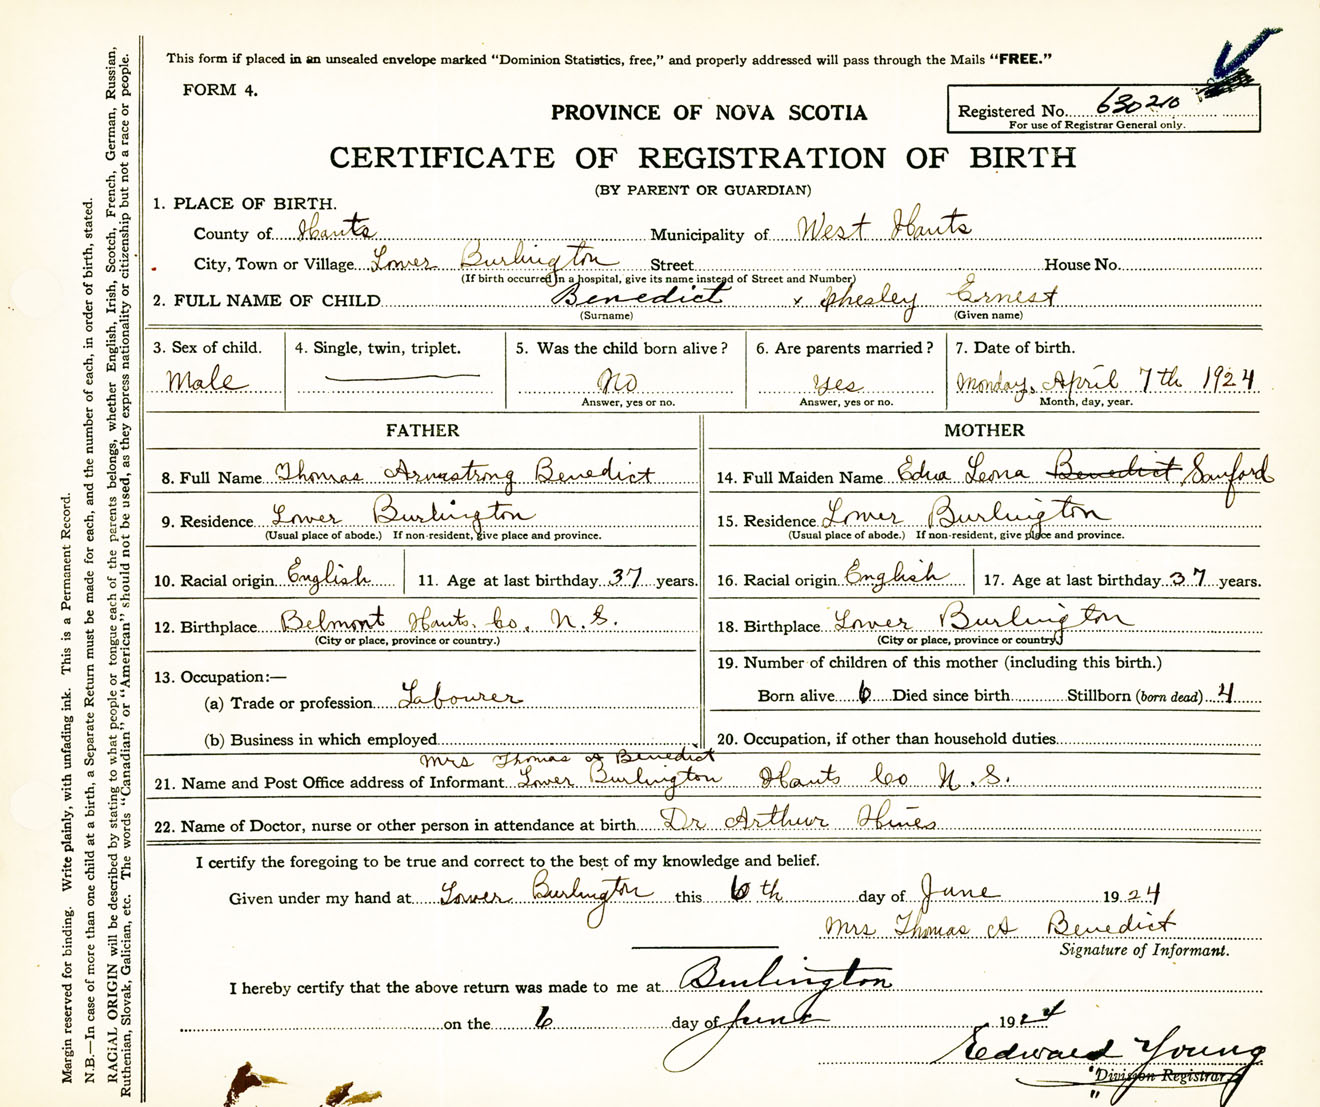 This form if placed in an unsealed envelope marked "Dominion Statistics, free," and properly addressed will pass through the Mails "FREE."
FORM 4.
PROVINCE OF NOVA SCOTIA
Registered No. 630210
For use of Registrar General only.
CERTIFICATE OF REGISTRATION OF BIRTH
(BY PARENT OR GUARDIAN)
1. PLACE OF BIRTH.
County of Hants Municipality of West Hants
City, Town or Village Lower Burlington Street House No.
(If birth occurred in a hospital, give its name instead of Street and Number)
2. FULL NAME OF CHILD Benedict x Chesley Ernest
(Surname) (Given name)
3. Sex of child. 4. Single, twin, triplet. 5. Was the child born alive? 6. Are parents married? 7. Date of birth.
Male No Yes Monday, April 7th 1924
Answer, yes or no. Answer, yes or no. Month, day, year.
FATHER MOTHER
8. Full Name Thomas Armstrong Benedict 14. Full Maiden Name Edna Leona Benedict Sanford
9. Residence Lower Burlington 15. Residence Lower Burlington
(Usual place of abode.) If non-resident, give place and province. (Usual place of abode.) If non-resident, give place and province.
10. Racial origin English 11. Age at last birthday 37 years. 16. Racial origin English 17. Age at last birthday 37 years.
12. Birthplace Belmont Hants. Co. N.S. 18. Birthplace Lower Burlington
(City or place, province or country.) (City or place, province or country)
13. Occupation:— 19. Number of children of this mother (including this birth.)
(a) Trade or profession Labourer Born alive 6 Died since birth Stillborn (born dead) 4
(b) Business in which employed 20. Occupation, if other than household duties
Mrs Thomas A Benedict
21. Name and Post Office address of Informant Lower Burlington Hants Co N.S.
22. Name of Doctor, nurse or other person in attendance at birth Dr Arthur Hines
I certify the foregoing to be true and correct to the best of my knowledge and belief.
Given under my hand at Lower Burlington this 6th day of June 1924
Mrs Thomas A Benedict
Signature of Informant.
I hereby certify that the above return was made to me at Burlington
on the 6 day of June 1924
Edward Young
Division Registrar
Margin reserved for binding. Write plainly, with unfading ink. This is a Permanent Record.
N.B.—In case of more than one child at a birth, a Separate Return must be made for each, and the number of each, in order of birth, stated.
RACIAL ORIGIN will be described by stating to what people or tongue each of the parents belongs, whether English, Irish, Scotch, French, German, Russian,
Ruthenian, Slovak, Galician, etc. The words "Canadian" or "American" should not be used, as they express nationality or citizenship but not a race or people.